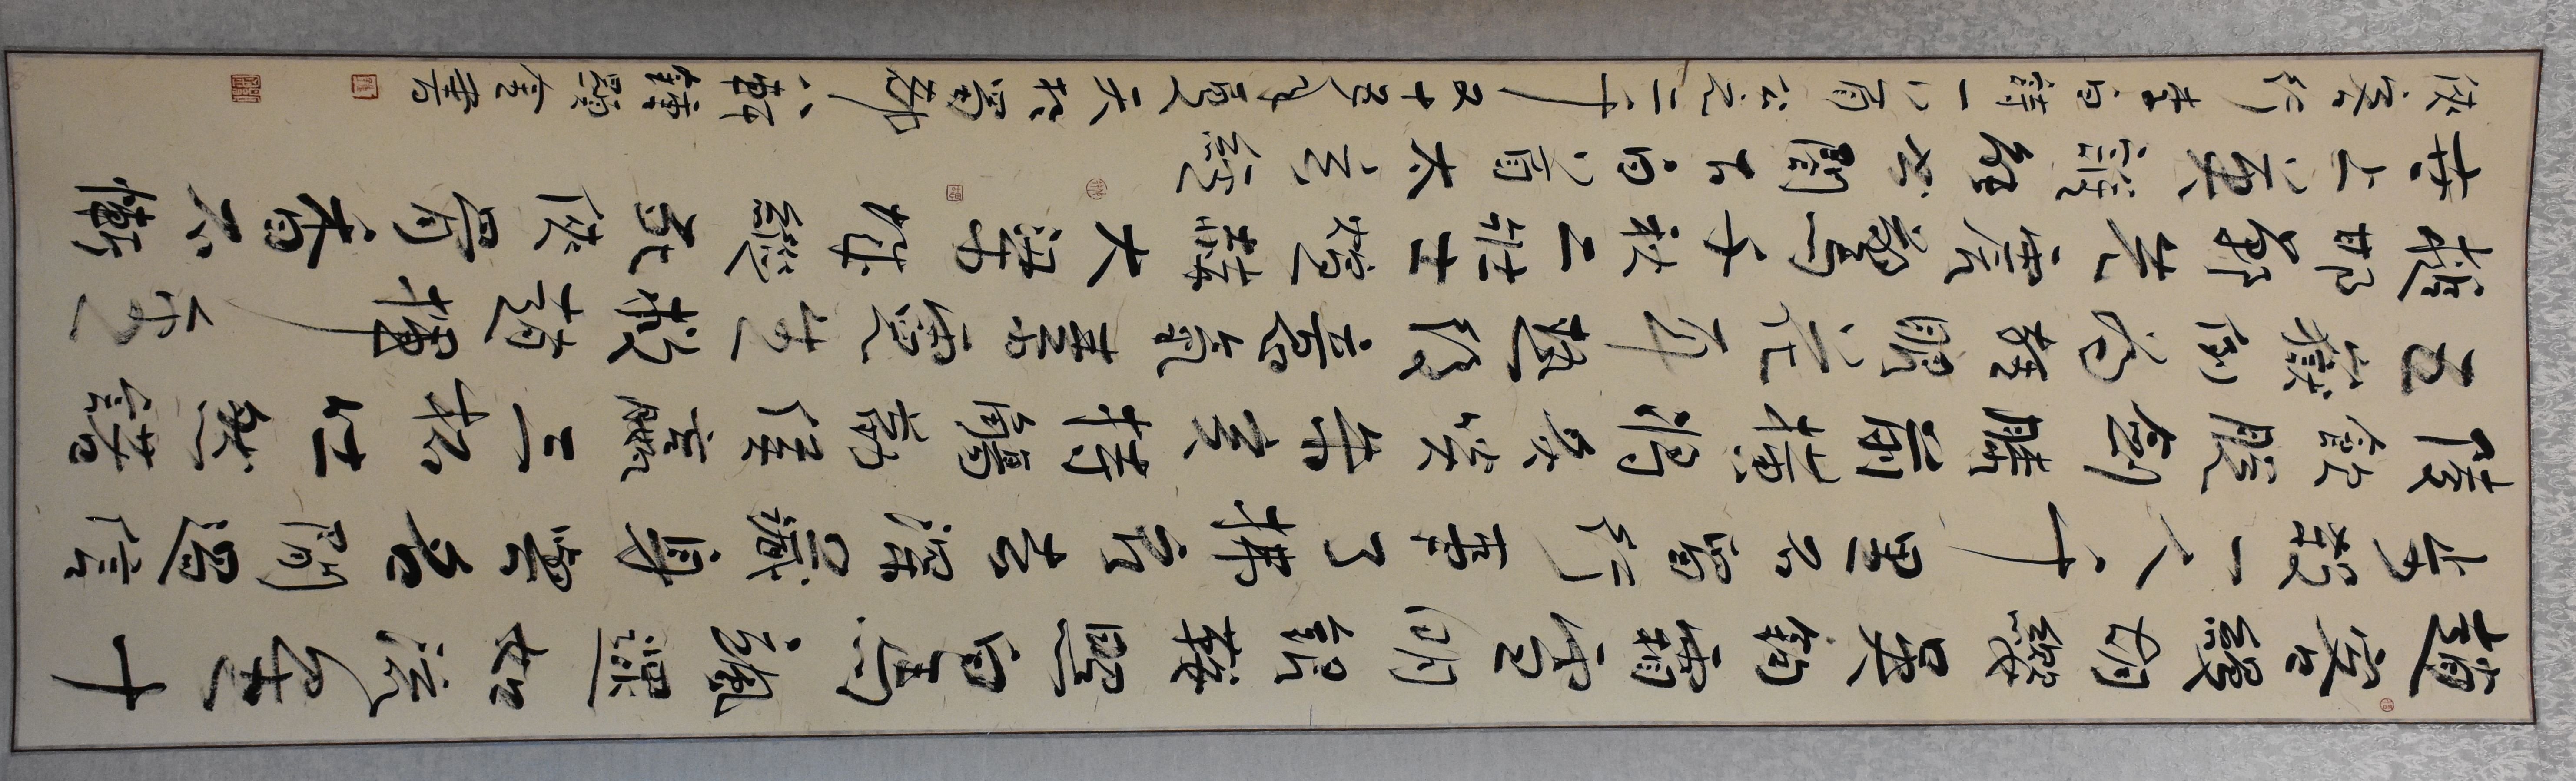 趙客縵胡纓吳鉤霜雪明銀鞍照白馬颯沓如流星十
步殺一人千里不留行事了拂衣去深藏身與名閒過信
陵飲脫劍膝前橫將炙啖朱亥持觴勸侯嬴三杯吐然諾
五嶽倒為輕眼花耳熱後意氣素霓生救趙揮金
槌邯鄲先震驚千秋二壯士烜赫大梁城縱死俠骨香不慚
世上英誰能書閣下白首太玄經
俠客行李白詩一首公元二千又十五年夏天於 書